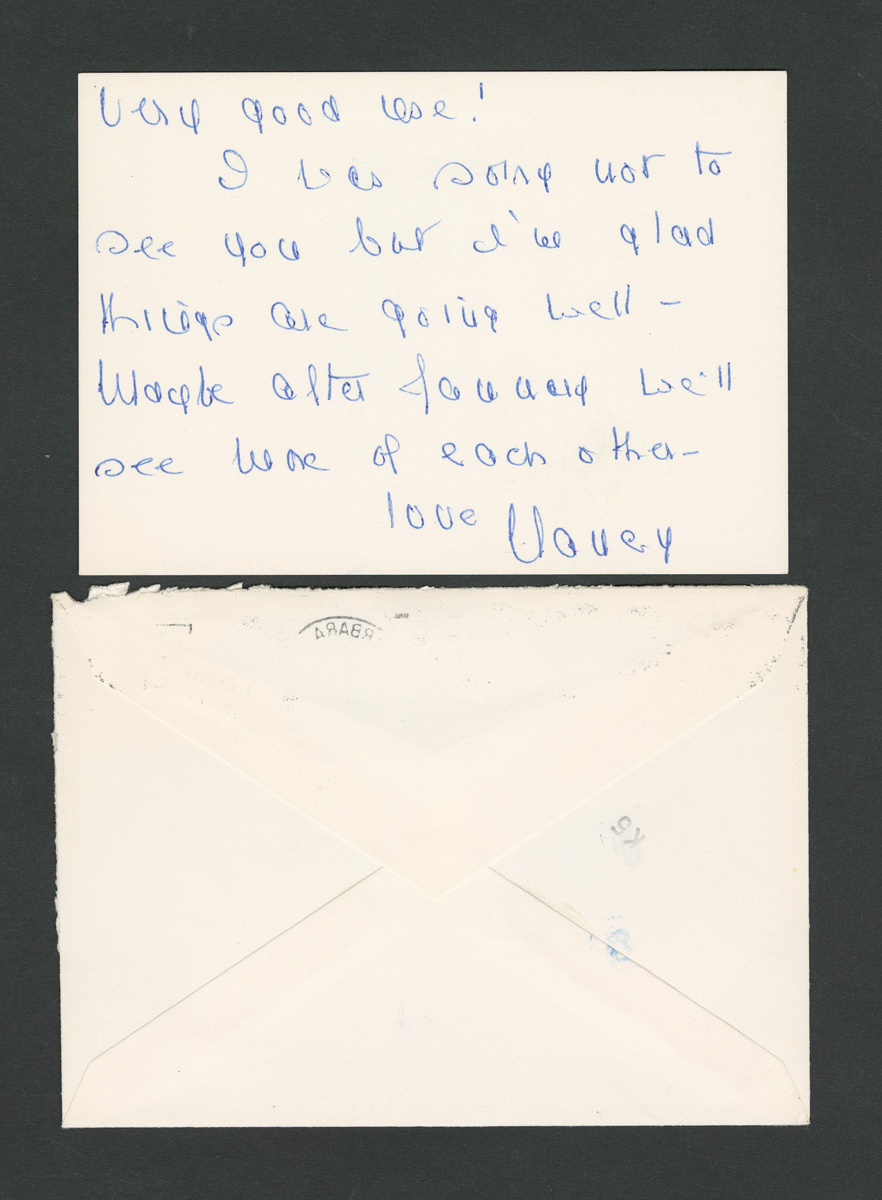 Very good use!
I was sorry not to
see you but I'm glad
things are going well –
Maybe after January we'll
see more of each other –
love Nancy
RBARA
K5